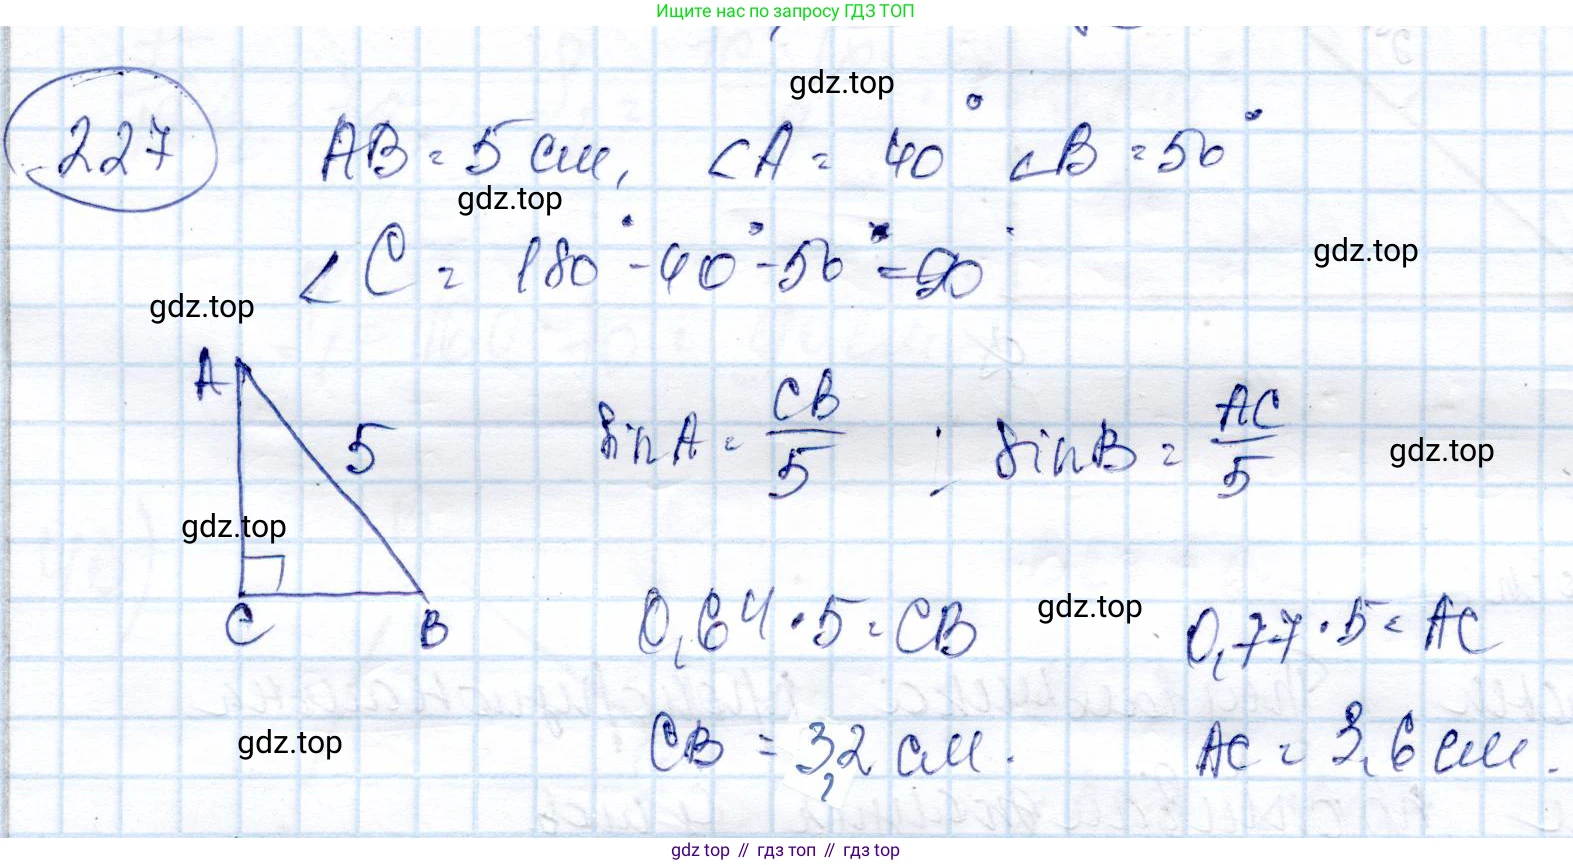 Ищите нас по запросу ГДЗ ТОП
gdz.top
227 AB = 5 см, ∠A = 40° ∠B = 50°
gdz.top
∠C = 180° - 40° - 50° = 90°
gdz.top
gdz.top
A
5
sinA = CB/5 ; sinB = AC/5
gdz.top
gdz.top
C B
0,64 · 5 = CB
gdz.top
0,77 · 5 = AC
gdz.top
CB = 3,2 см.
AC = 3,6 см.
gdz top // гдз топ // гдз top